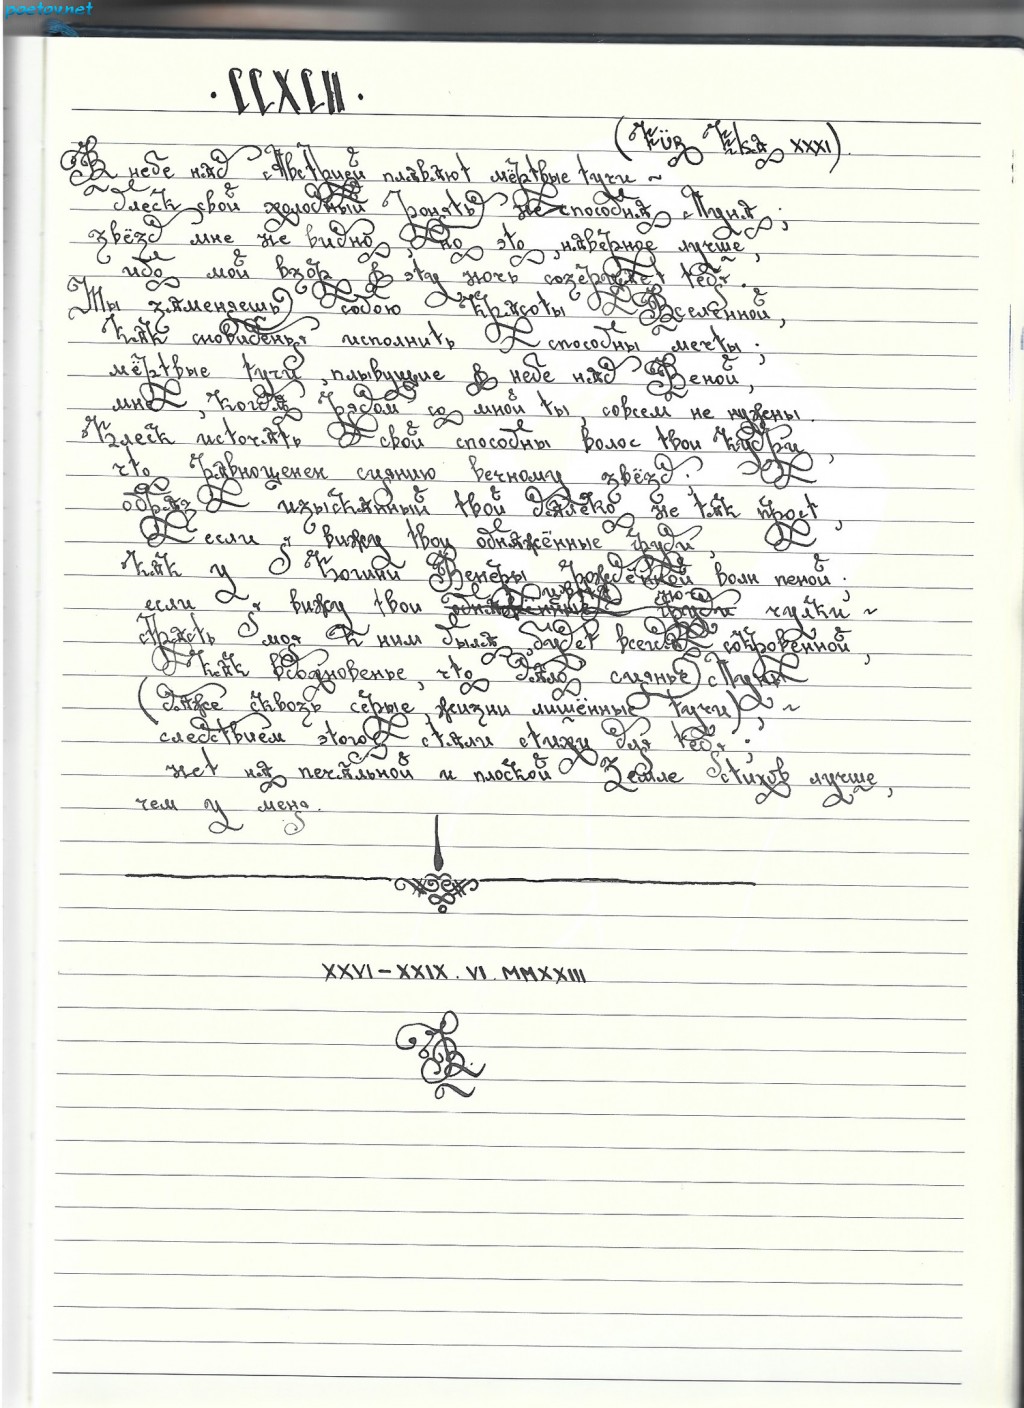 poetov.net
· CCXCII ·
(Für Elsa XXXI).
В небе над Австрией плавают мёртвые тучи ~
блеск свой холодный ронять не способна Луна;
звёзд мне не видно, но это, наверное, лучше,
ибо мой взор в эту ночь созерцает тебя.
Ты заменяешь собою красоты Вселенной,
как сновиденья исполнить способны мечты;
мёртвые тучи, плывущие в небе над Веной,
мне, когда рядом со мной ты, совсем не нужны.
Блеск источать свой способны волос твои кудри,
что равноценен сиянию вечному звёзд;
образ изысканный твой далеко не так прост,
если я вижу твои обнажённые груди,
как у Богини Венеры рождённой волн пеной;
если я вижу твои чулки ~
страсть моя к ним была, будет всегда сокровенной,
как вдохновенье, что дало сиянье Луны
(даже сквозь серые, жизни лишённые тучи), ~
следствием этого стали стихи для тебя;
нет на печальной и плоской Земле стихов лучше,
чем у меня.
XXVI – XXIX . VI . MMXXIII